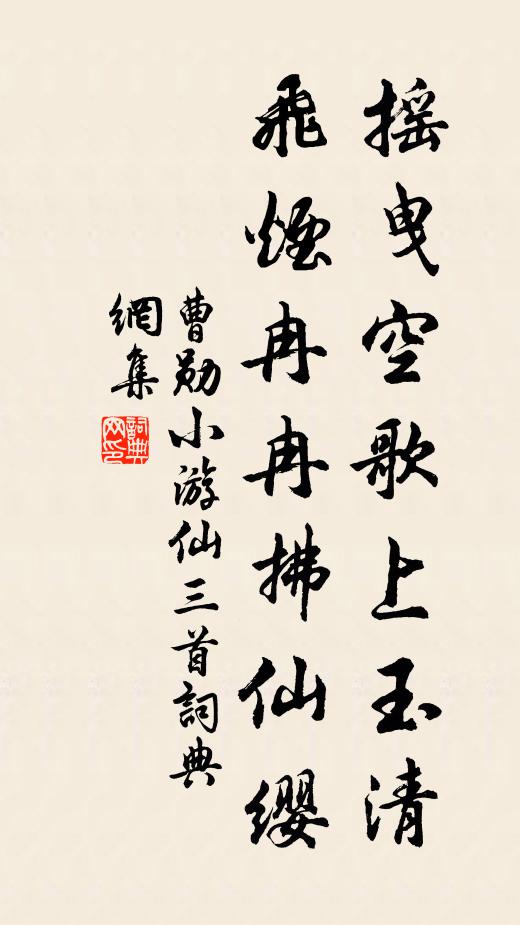 摇曳空歌上玉清
飛煙冉冉拂仙缨
曹勋小游仙三首詞典
網集
詞典网印